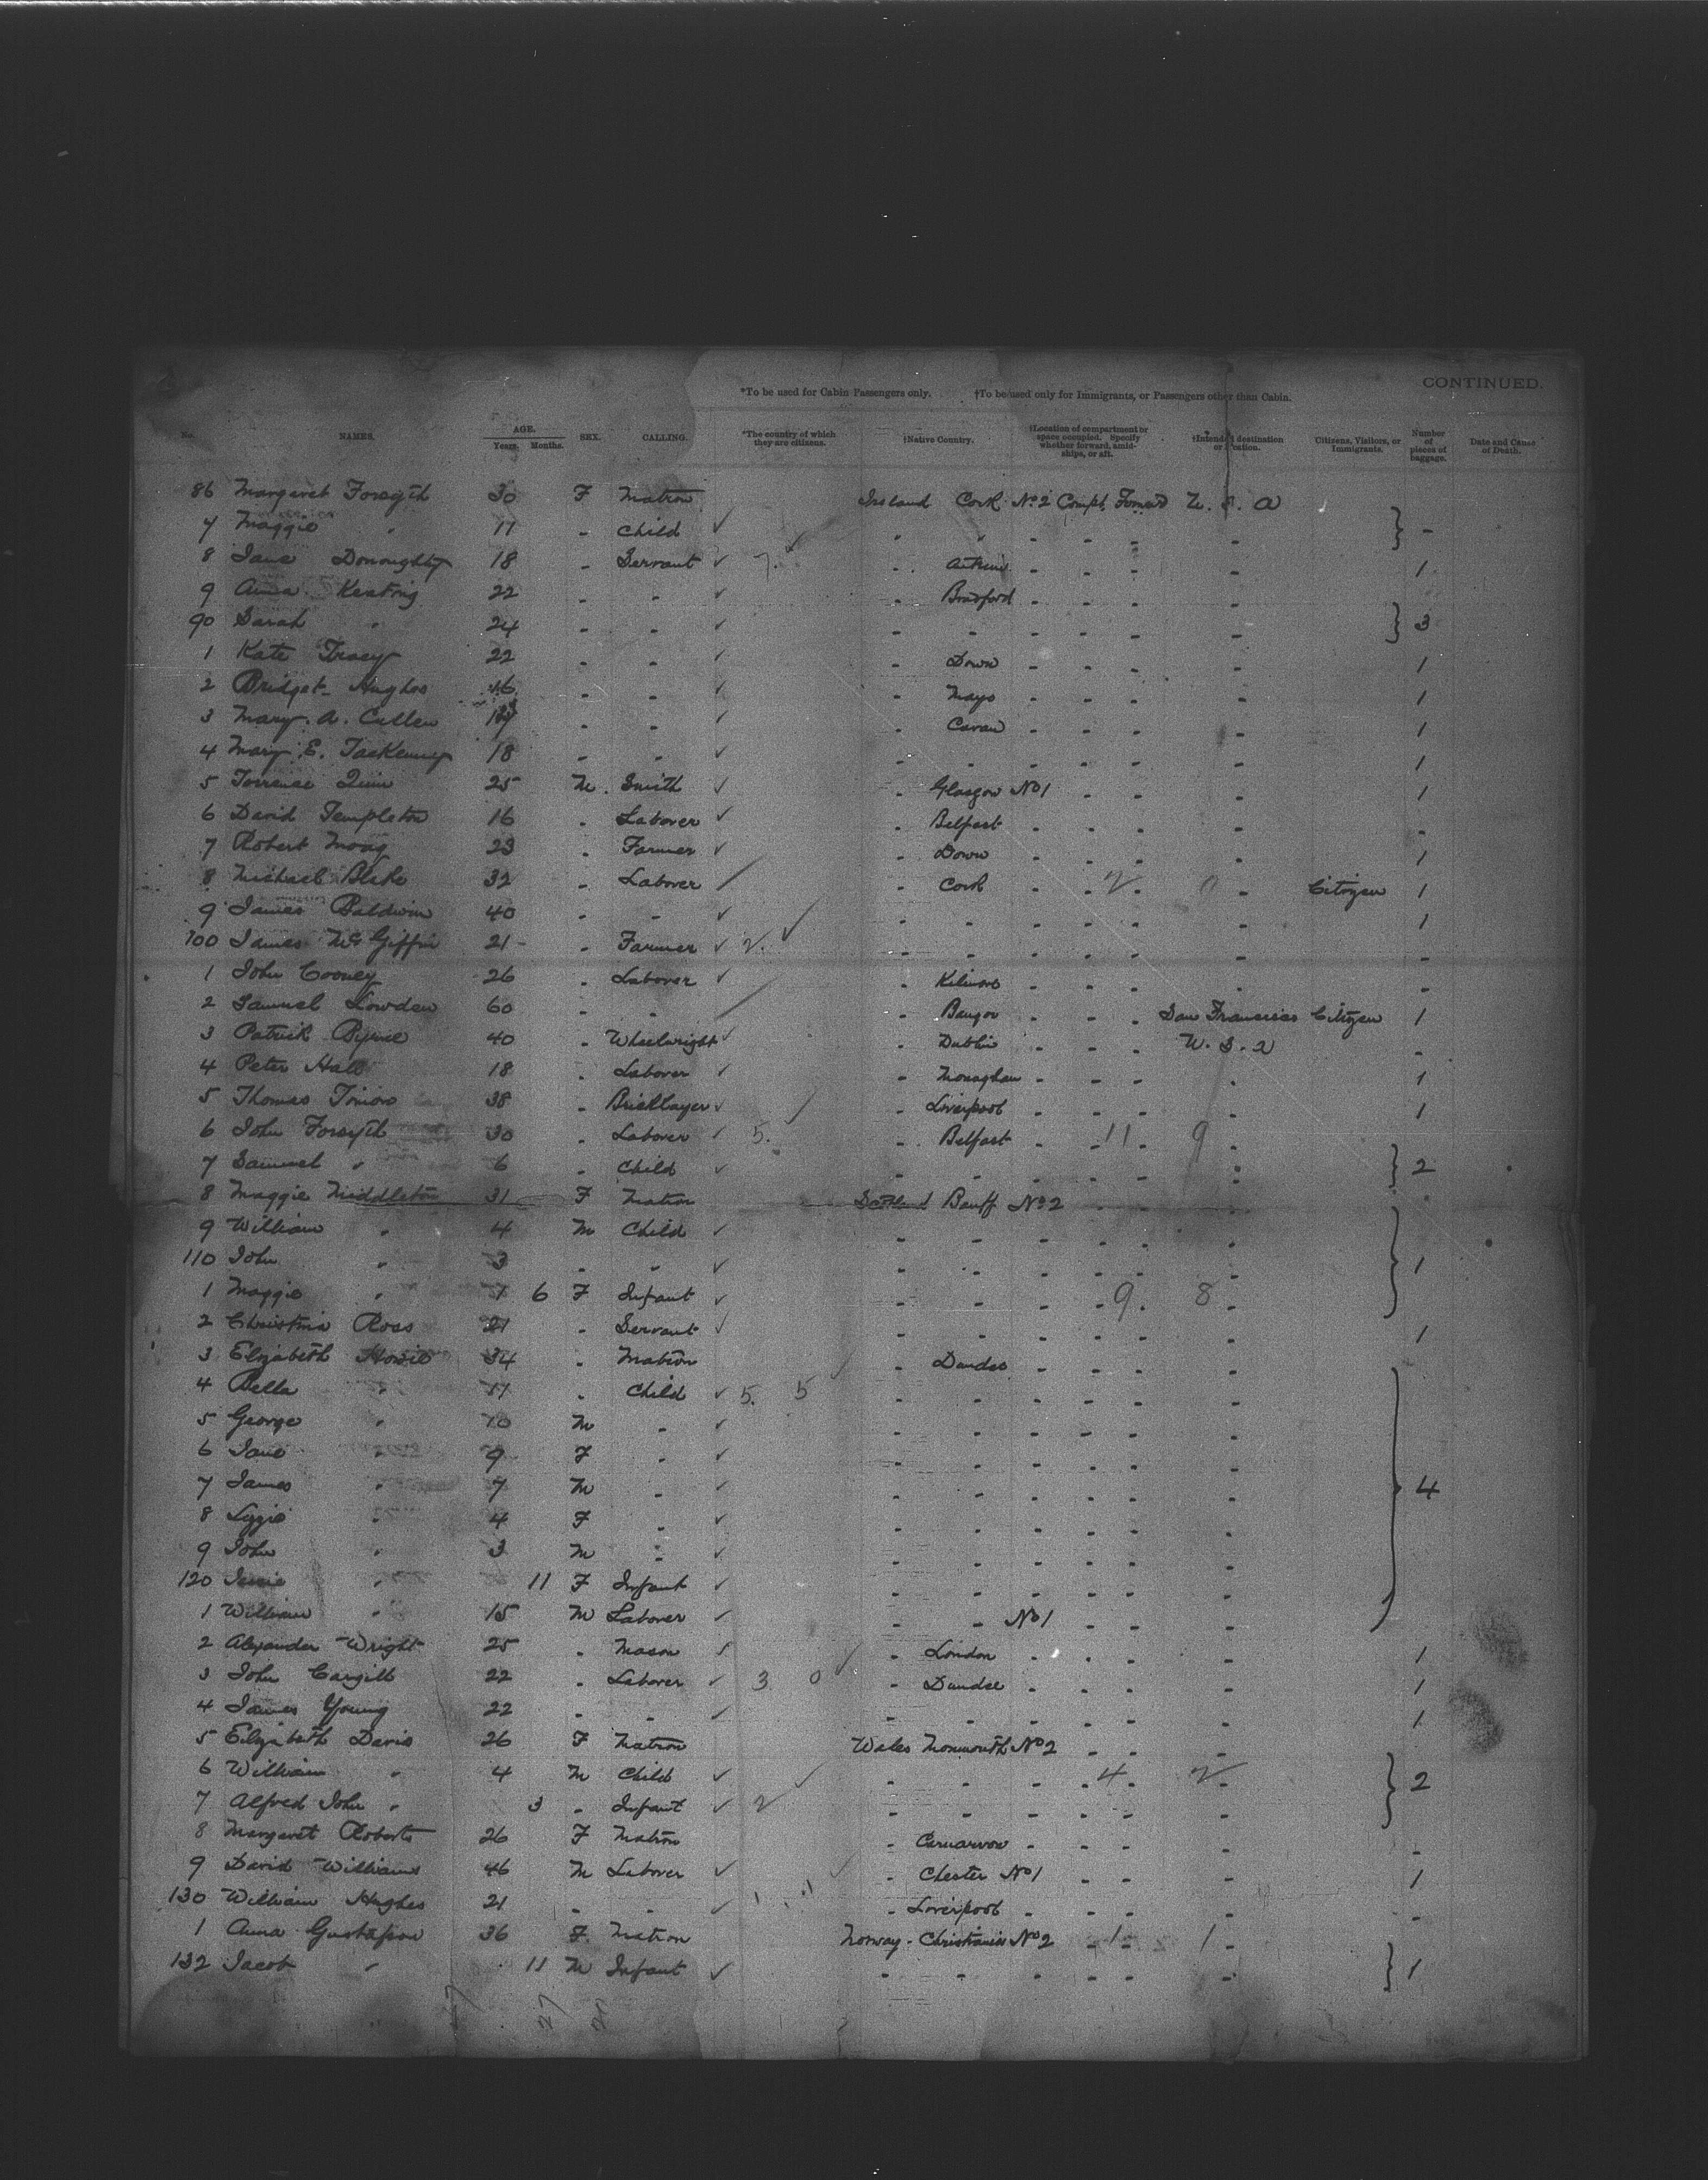 CONTINUED.
*To be used for Cabin Passengers only. †To be used only for Immigrants, or Passengers other than Cabin.
No. NAMES. AGE. Years. Months. SEX. CALLING. *The country of which they are citizens. †Native Country. †Location of compartment or space occupied. Specify whether forward, amidships, or aft. †Intended destination or location. Citizens, Visitors, or Immigrants. Number of pieces of baggage. Date and Cause of Death.
86 Margaret Forsyth 30 F Matron Ireland Cork No 2 Compt. Forward U. S. A
7 Maggie " 11 - Child ✓ - - - - - - } -
8 Jane Donoughty 18 - Servant ✓ 7. ✓ - Antrim - - - - 1
9 Anna Keating 22 - - ✓ - Bradford - - - -
90 Sarah " 24 - - ✓ - - - - - - } 3
1 Kate Tracy 22 - - ✓ - Down - - - - 1
2 Bridget Hughes 16 - - ✓ - Mayo - - - - 1
3 Mary A. Cullen - - ✓ - Cavan - - - - 1
4 Mary E. 18 - - ✓ - - - - - - 1
5 Quin 25 M. Smith ✓ - Glasgow No 1 - - - 1
6 David Templeton 16 - Laborer ✓ - Belfast - - - - -
7 Robert Moag 23 - Farmer ✓ - Down - - - - 1
8 Michael Blake 32 - Laborer / - Cork - - 2 - 0 - Citizen 1
9 James Baldwin 40 - - ✓ ✓ - - - - - - 1
100 James McGiffin 21 - Farmer ✓ 2. - - - - - - -
1 John Cooney 26 - Laborer ✓ - - - - - -
2 Samuel Lowden 60 - - / - Bangor - - - San Francisco Citizen 1
3 Patrick Byrne 40 - Wheelwright ✓ - Dublin - - - U. S. A -
4 Peter Hall 18 - Laborer ✓ - Monaghan - - - - 1
5 Thomas 38 - Bricklayer ✓ / - Liverpool - - - - 1
6 John Forsyth 30 - Laborer ✓ 5. - Belfast - - 11 - 9 -
7 Samuel " 6 - Child ✓ - - - - - - } 2
8 Maggie Middleton 31 F Matron Scotland Banff No 2 - - -
9 William " 4 M Child ✓ - - - - - -
110 John " 3 - " ✓ - - - - - - } 1
1 Maggie " 1 6 F Infant ✓ - - - - 9. 8 -
2 Christina Ross 21 - Servant ✓ - - - - - - 1
3 Elizabeth Howie 34 - Matron / - Dundee - - - -
4 Bella " 11 - Child ✓ 5. 5 - - - - - -
5 George " 10 M - ✓ - - - - - -
6 Jane " 9 F - ✓ - - - - - -
7 James " 7 M - ✓ - - - - - - } 4
8 Lizzie " 4 F - ✓ - - - - - -
9 John " 3 M - ✓ - - - - - -
120 Jessie " 11 F Infant ✓ - - - - - -
1 William " 15 M Laborer ✓ - - No 1 - - -
2 Alexander Wright 25 - Mason ✓ ✓ - London - - - - 1
3 John Cargill 22 - Laborer ✓ 3 0 - Dundee - - - - 1
4 James Young 22 - - ✓ - - - - - - 1
5 Elizabeth Davis 26 F Matron Wales Monmouth No 2 - - -
6 William " 4 M Child ✓ ✓ - - - - 4 - 2 - } 2
7 Alfred John " 3 - Infant ✓ 2 - - - - - -
8 Margaret Roberts 26 F Matron - Carnarvon - - - - -
9 David Williams 46 M Laborer ✓ ✓ - Chester No 1 - - - 1
130 William Hughes 21 - - ✓ 1 1 - Liverpool - - - - -
1 Anna Gustafson 36 F. Matron Norway - Christiania No 2 - 1 - 1 -
132 Jacob " 11 M Infant ✓ - - - - - - } 1
27 27